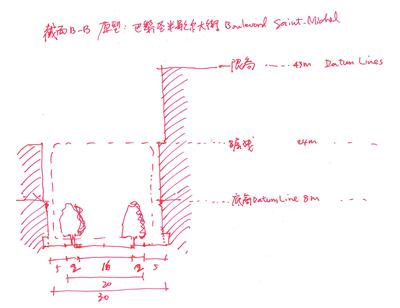 截面B-B 原型：巴黎圣米歇尔大街 Boulevard Saint-Michel
限高 43m Datum Lines
24m
底商 Datum Line 8m
5 2 16 2 5
20
30